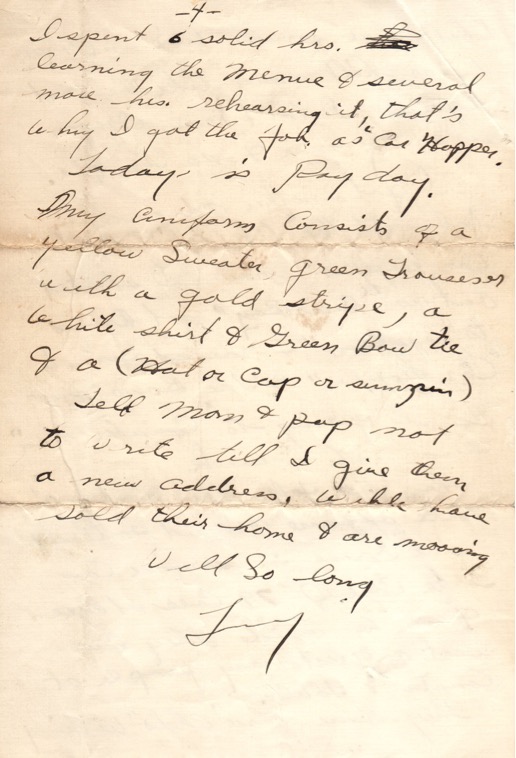 -4-
I spent 6 solid hrs.
learning the Menue & several
more hrs. rehearsing it, that's
why I got the job, as "Car Hopper.
Today is Pay day.
My uniform Consists of a
yellow Sweater, green Trousers
with a gold stripe, a
white shirt & Green Bow tie
& a (Hat or Cap or sumpin)
Tell Mom & pop not
to write till I give them
a new address, have
sold their home & are mooving
Well So long